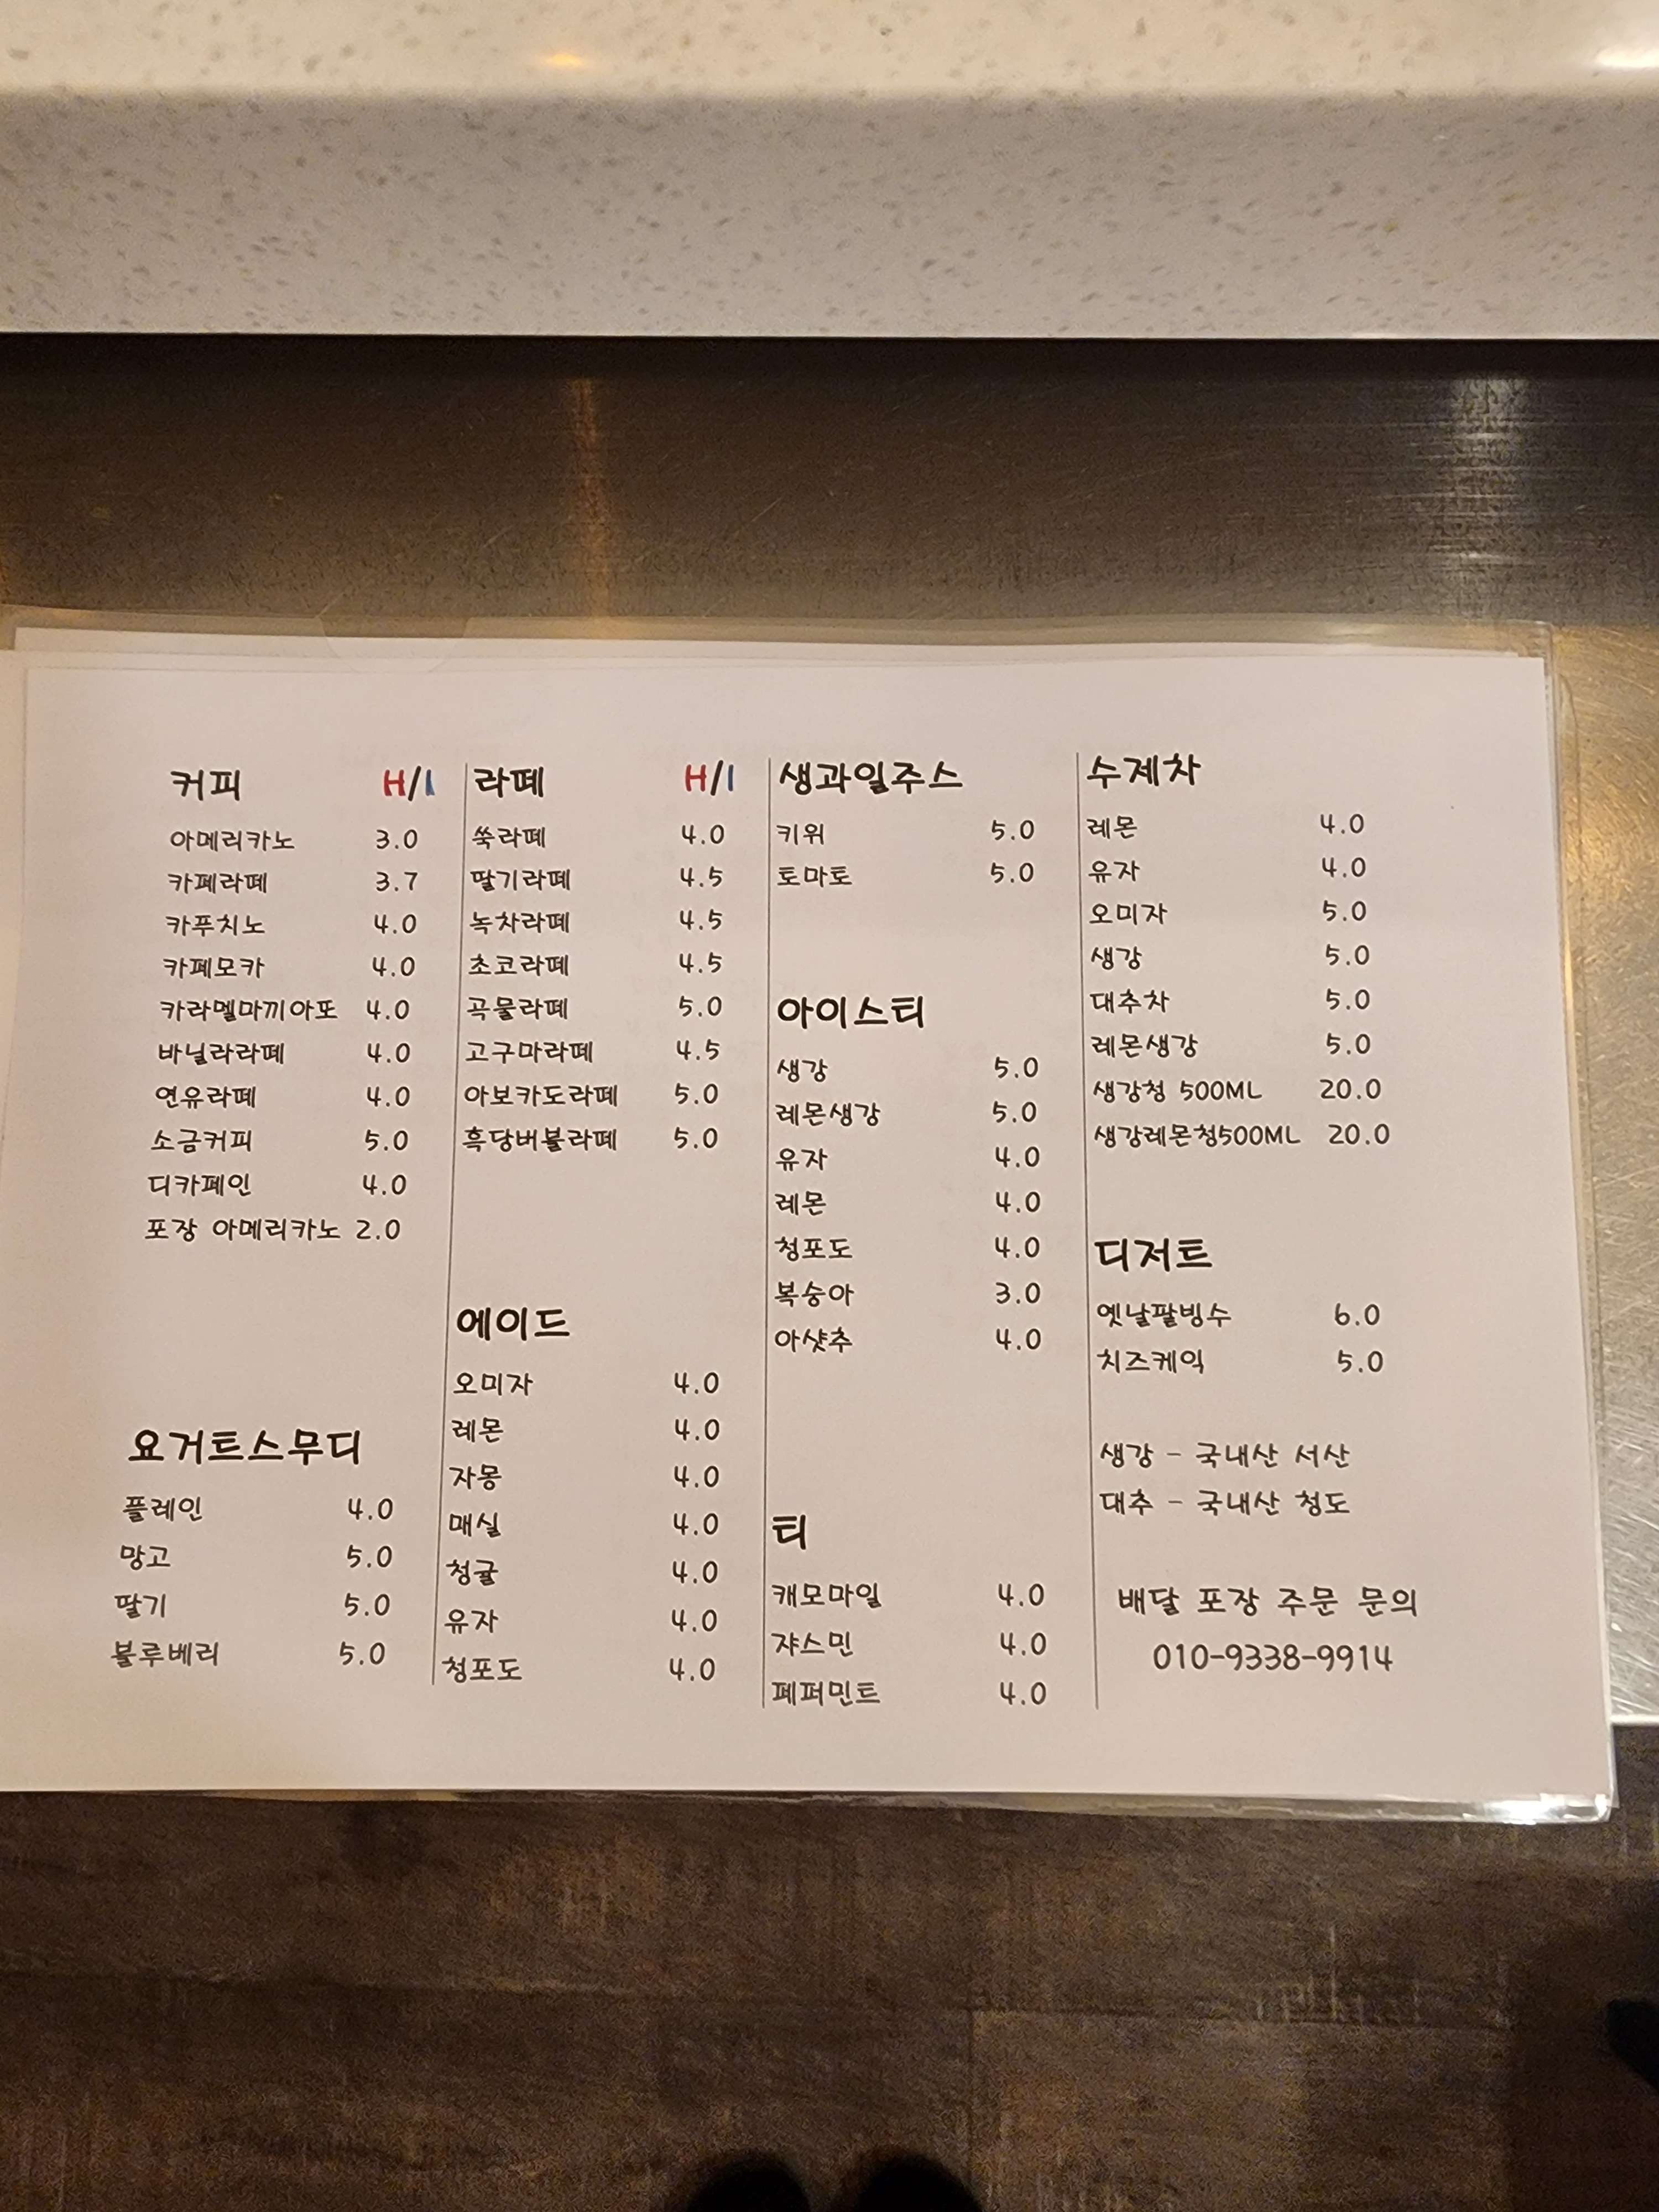 커피 H/I
아메리카노 3.0
카페라떼 3.7
카푸치노 4.0
카페모카 4.0
카라멜마끼아또 4.0
바닐라라떼 4.0
연유라떼 4.0
소금커피 5.0
디카페인 4.0
포장 아메리카노 2.0
요거트스무디
플레인 4.0
망고 5.0
딸기 5.0
블루베리 5.0
라떼 H/I
쑥라떼 4.0
딸기라떼 4.5
녹차라떼 4.5
초코라떼 4.5
곡물라떼 5.0
고구마라떼 4.5
아보카도라떼 5.0
흑당버블라떼 5.0
에이드
오미자 4.0
레몬 4.0
자몽 4.0
매실 4.0
청귤 4.0
유자 4.0
청포도 4.0
생과일주스
키위 5.0
토마토 5.0
아이스티
생강 5.0
레몬생강 5.0
유자 4.0
레몬 4.0
청포도 4.0
복숭아 3.0
아샷추 4.0
티
캐모마일 4.0
쟈스민 4.0
페퍼민트 4.0
수제차
레몬 4.0
유자 4.0
오미자 5.0
생강 5.0
대추차 5.0
레몬생강 5.0
생강청 500ML 20.0
생강레몬청500ML 20.0
디저트
옛날팥빙수 6.0
치즈케익 5.0
생강 - 국내산 서산
대추 - 국내산 청도
배달 포장 주문 문의
010-9338-9914